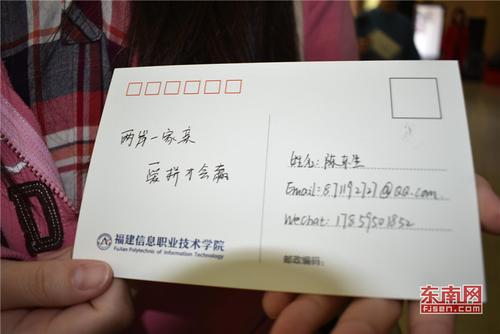 两岸一家亲
爱拼才会赢
福建信息职业技术学院
FuJian Polytechnic of Information Technology
姓名:陈东生
Email:871192727@QQ.com
WeChat:17859501852
邮政编码:
东南网
FJSEN.COM